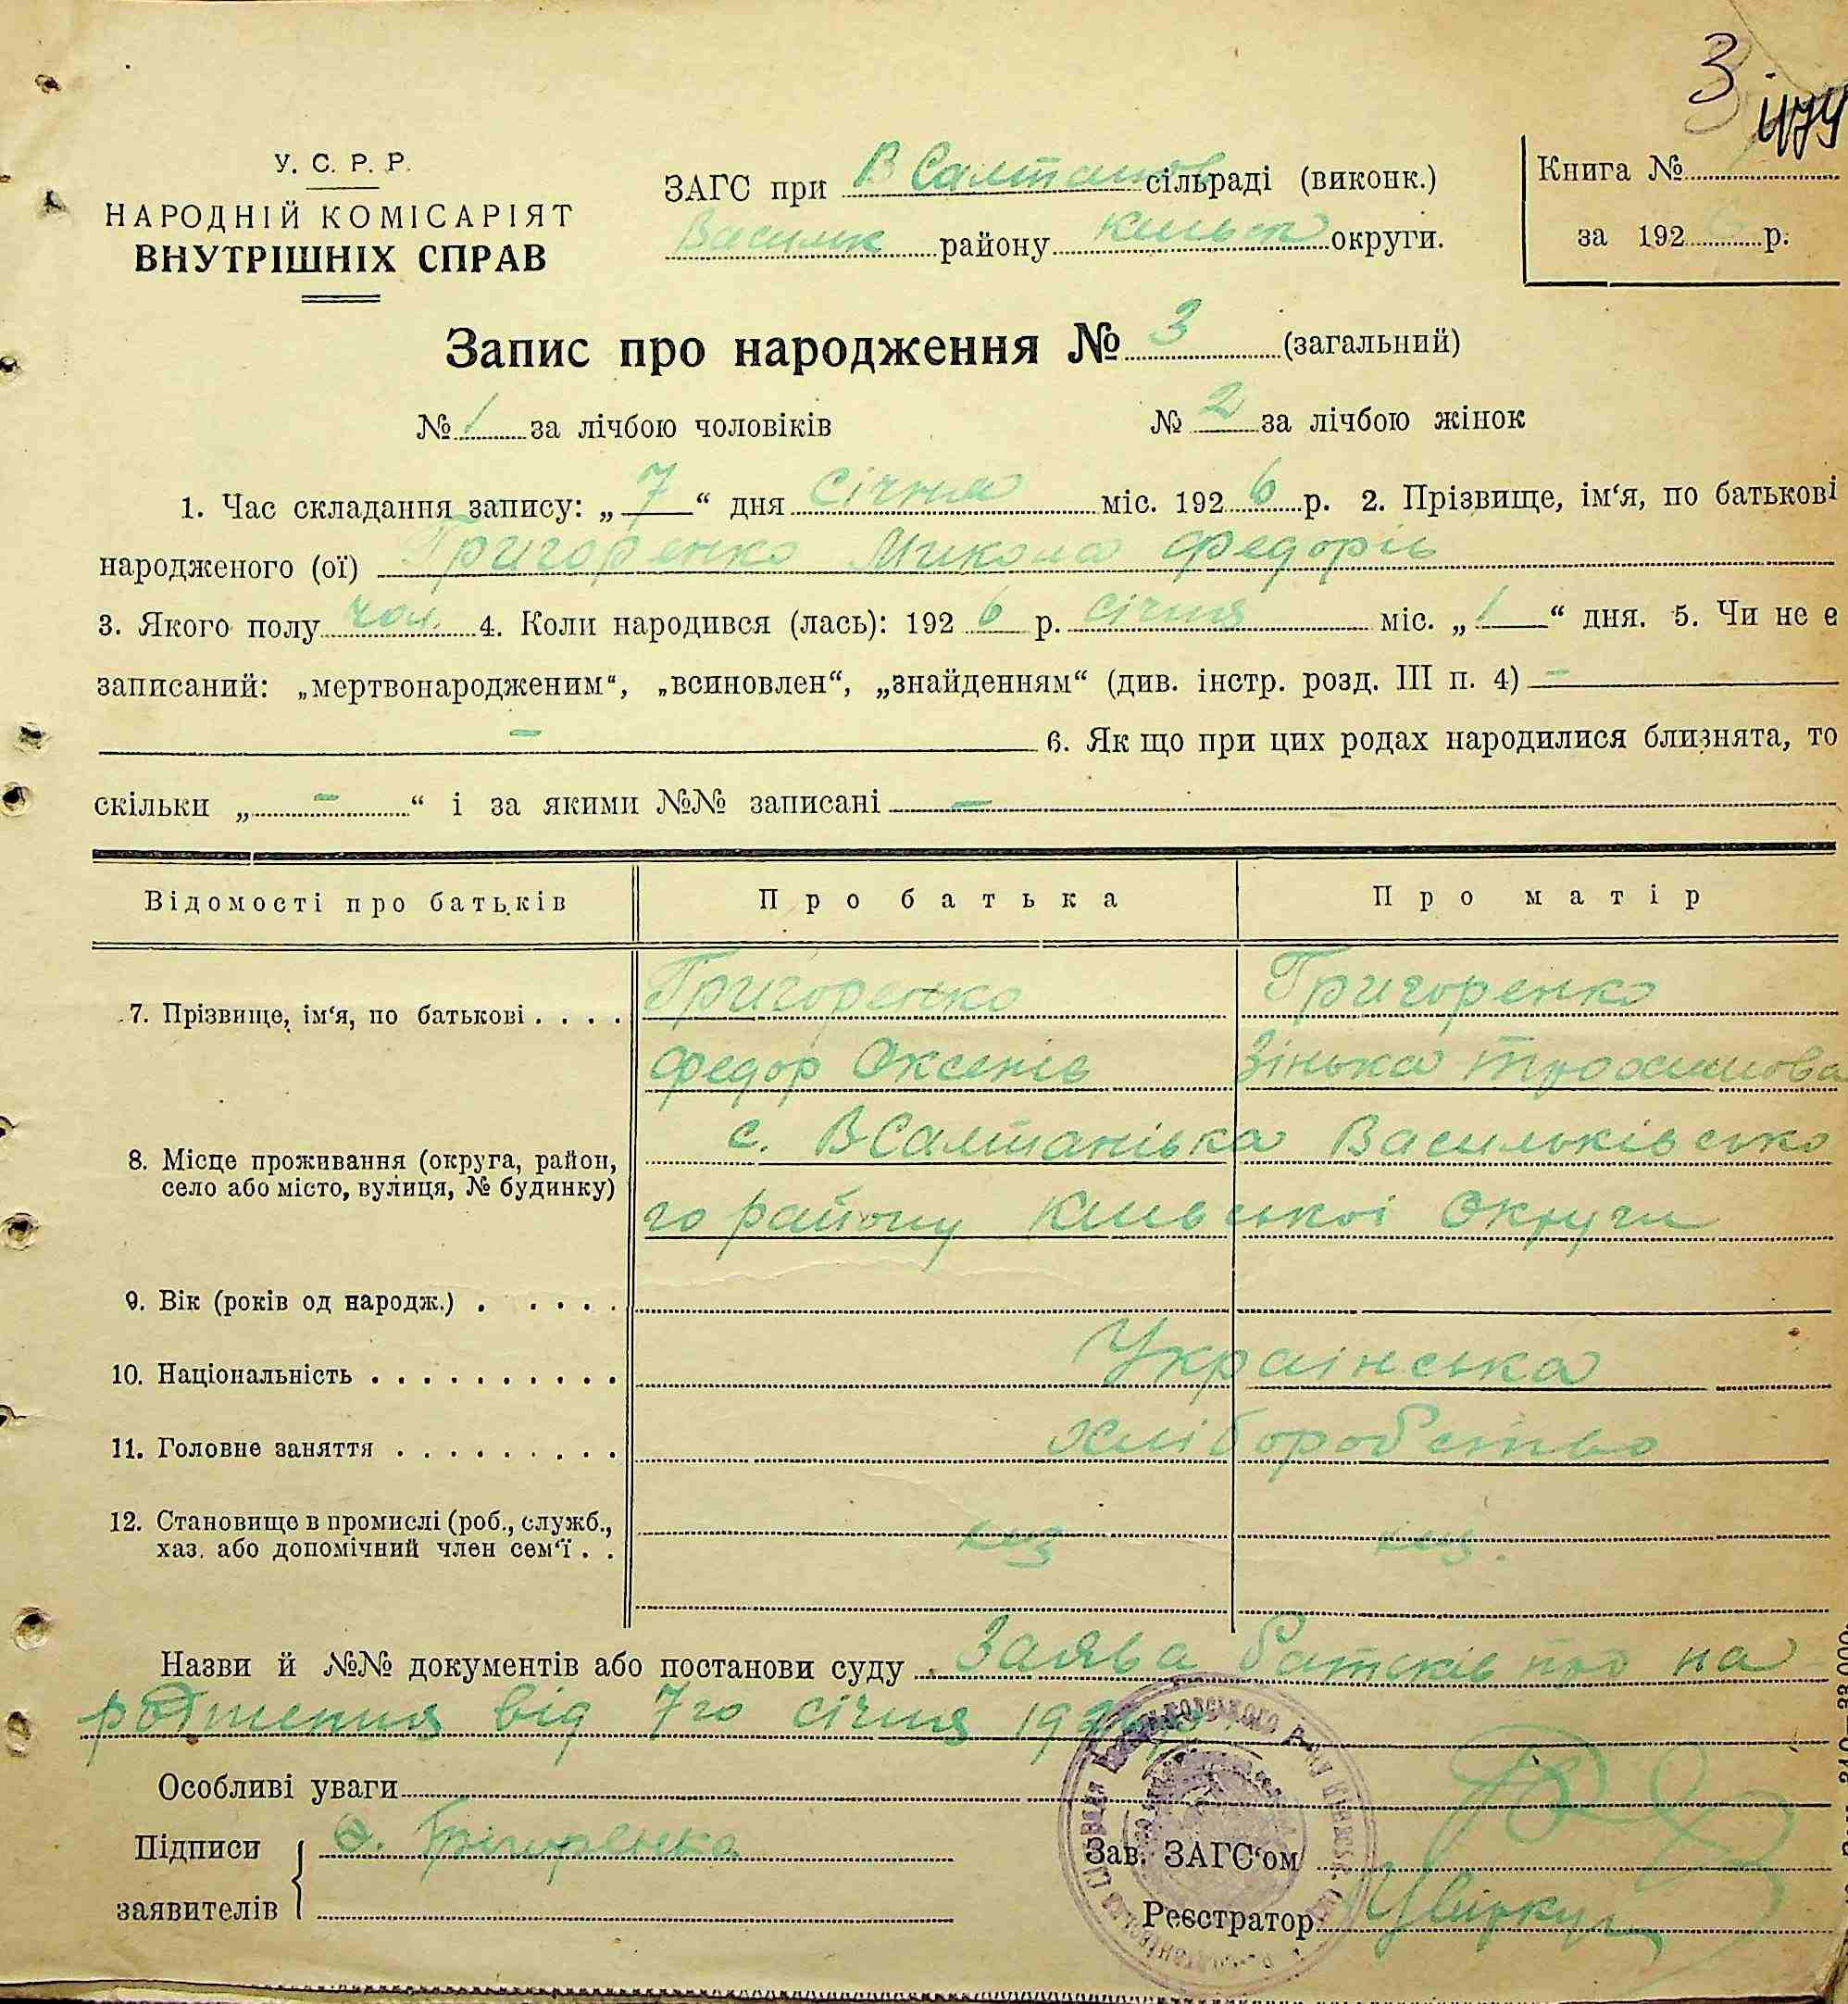 3
У. С. Р. Р.
НАРОДНІЙ КОМІСАРІЯТ
ВНУТРІШНІХ СПРАВ
ЗАГС при В Салтанов сільраді (виконк.)
Васильк району Київськ округи.
Книга №
за 192 6 р.
Запис про народження № 3 (загальний)
№ 1 за лічбою чоловіків № 2 за лічбою жінок
1. Час складання запису: „ 7 “ дня Січня міс. 192 6 р. 2. Прізвище, ім‘я, по батькові
народженого (ої) Григоренко Микола Федорів
3. Якого полу чол. 4. Коли народився (лась): 192 6 р. Січня міс. „ 1 “ дня. 5. Чи не є
записаний: „мертвонародженим“, „всиновлен“, „знайденням“ (див. інстр. розд. III п. 4) –
– 6. Як що при цих родах народилися близнята, то
скільки „ – “ і за якими №№ записані –
Відомості про батьків Про батька Про матір
7. Прізвище, ім‘я, по батькові . . . . Григоренко Григоренко
Федор Оксенів Зінька Трохимова
8. Місце проживання (округа, район, село або місто, вулиця, № будинку) с. ВСалтанівка Васильківсько
го району Київської Округи
9. Вік (років од народж.) . . . . .
10. Національність . . . . . . . . . . Українська
11. Головне заняття . . . . . . . . . хліборобство
12. Становище в промислі (роб., служб.,
хаз. або допомічний член сем‘ї . .
Назви й №№ документів або постанови суду . Заява батьків про на
родження від 7го січня 192
Особливі уваги
Підписи Ф. Григоренко
заявителів
Зав. ЗАГС‘ом
Реєстратор Цвіркун